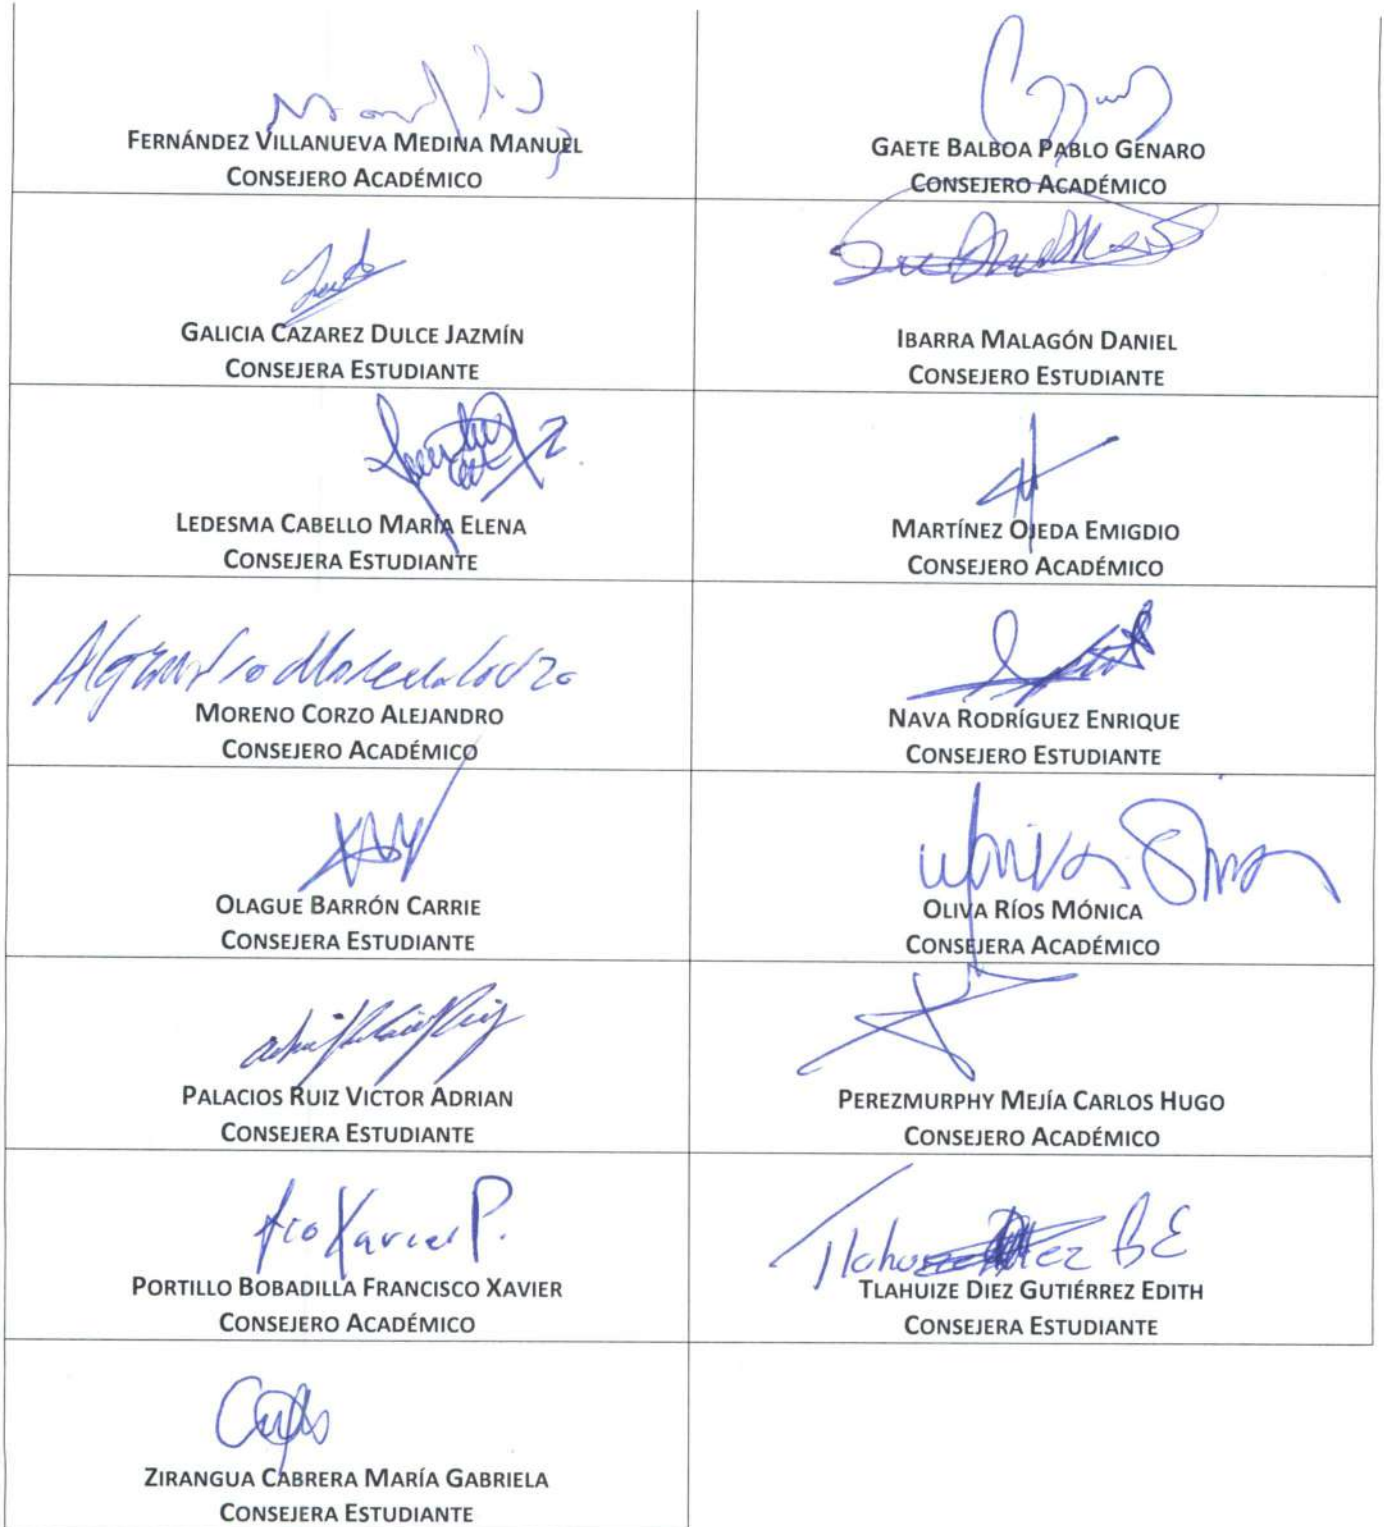 FERNÁNDEZ VILLANUEVA MEDINA MANUEL
CONSEJERO ACADÉMICO
GAETE BALBOA PABLO GENARO
CONSEJERO ACADÉMICO
GALICIA CAZAREZ DULCE JAZMÍN
CONSEJERA ESTUDIANTE
IBARRA MALAGÓN DANIEL
CONSEJERO ESTUDIANTE
LEDESMA CABELLO MARÍA ELENA
CONSEJERA ESTUDIANTE
MARTÍNEZ OJEDA EMIGDIO
CONSEJERO ACADÉMICO
MORENO CORZO ALEJANDRO
CONSEJERO ACADÉMICO
NAVA RODRÍGUEZ ENRIQUE
CONSEJERO ESTUDIANTE
OLAGUE BARRÓN CARRIE
CONSEJERA ESTUDIANTE
OLIVA RÍOS MÓNICA
CONSEJERA ACADÉMICO
PALACIOS RUIZ VICTOR ADRIAN
CONSEJERA ESTUDIANTE
PEREZMURPHY MEJÍA CARLOS HUGO
CONSEJERO ACADÉMICO
Fco Xavier P.
PORTILLO BOBADILLA FRANCISCO XAVIER
CONSEJERO ACADÉMICO
TLAHUIZE DIEZ GUTIÉRREZ EDITH
CONSEJERA ESTUDIANTE
ZIRANGUA CABRERA MARÍA GABRIELA
CONSEJERA ESTUDIANTE